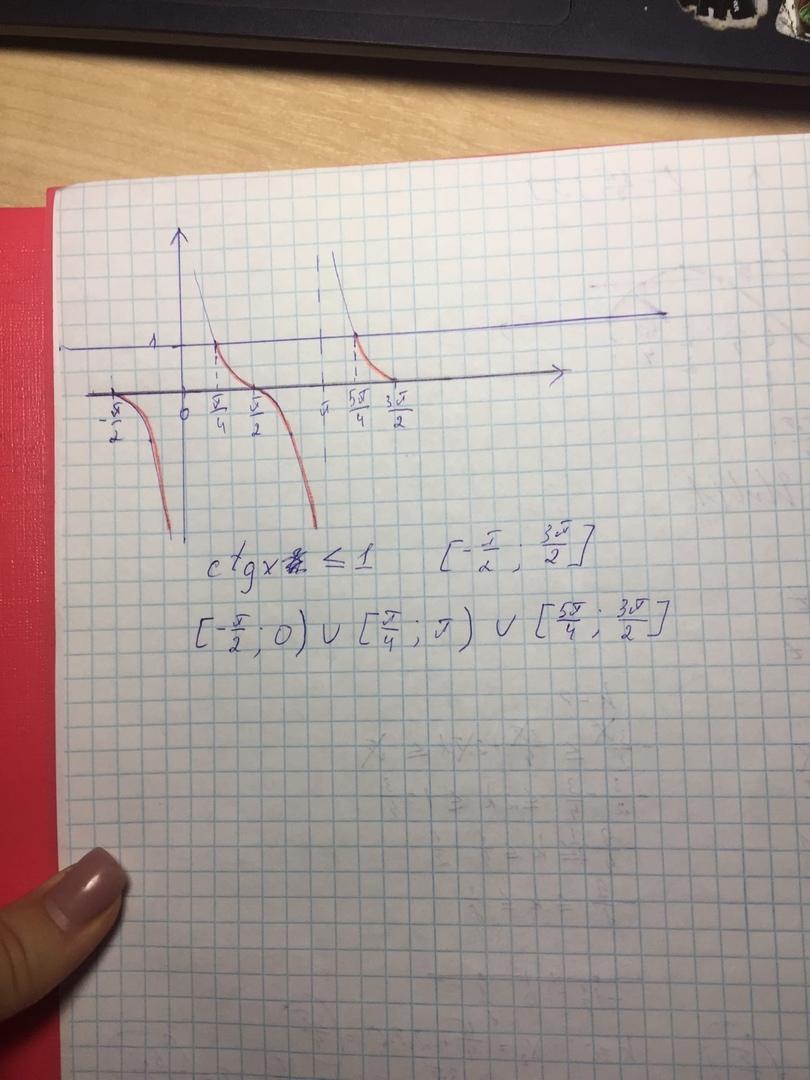 1
-π/2 0 π/4 π/2 π 5π/4 3π/2
ctgx ≤ 1 [-π/2; 3π/2]
[-π/2; 0) ∪ [π/4; π) ∪ [5π/4; 3π/2]